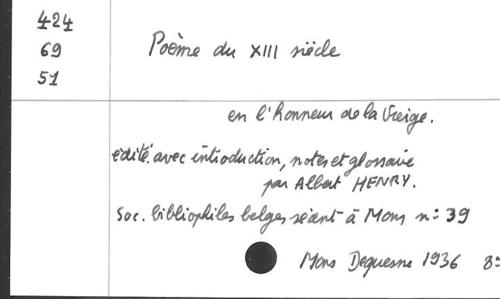 424
69
51
Poème du XIII siècle
en l'honneur de la Vierge.
édité avec introduction, notes et glossaire
par Albert HENRY.
Soc. bibliophiles belges séant à Mons n: 39
Mons Dequesne 1936 8º